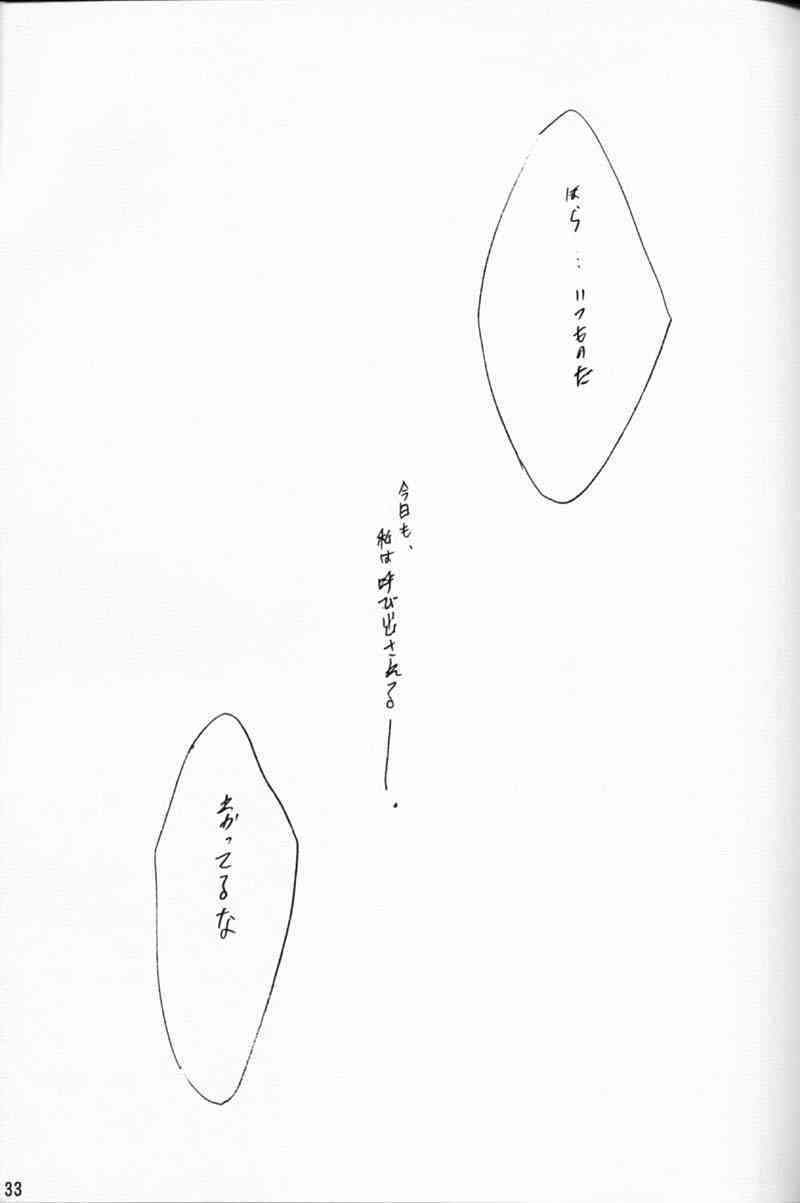 ほら…いつものだ
今日も、
私は呼び出される―.
上がってるな
33